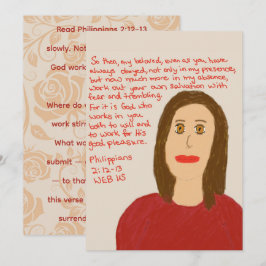 Read Philippians 2:12-13
slowly. Not
God work
Where do
work stir
What wo
submit —
— to tha
this verse
surrend
So then, my beloved, even as you have
always obeyed, not only in my presence,
but now much more in my absence,
work out your own salvation with
fear and trembling.
For it is God who
works in you
both to will and
to work for His
good pleasure.
Philippians
2:12-13
WEB US